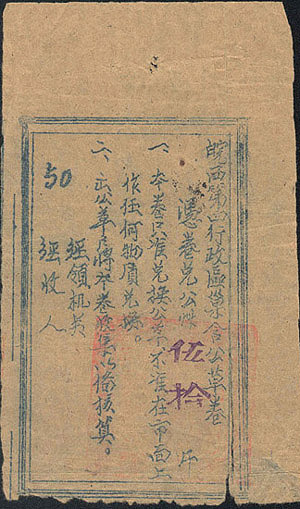 皖西第四行政區柴草公草卷
憑卷兑公草 伍拾 斤
一、本卷只准兑换公草不准在市面上
作任何物质兑换。
二、出公草后将本卷收集以备核算。
50
經領机关
經收人